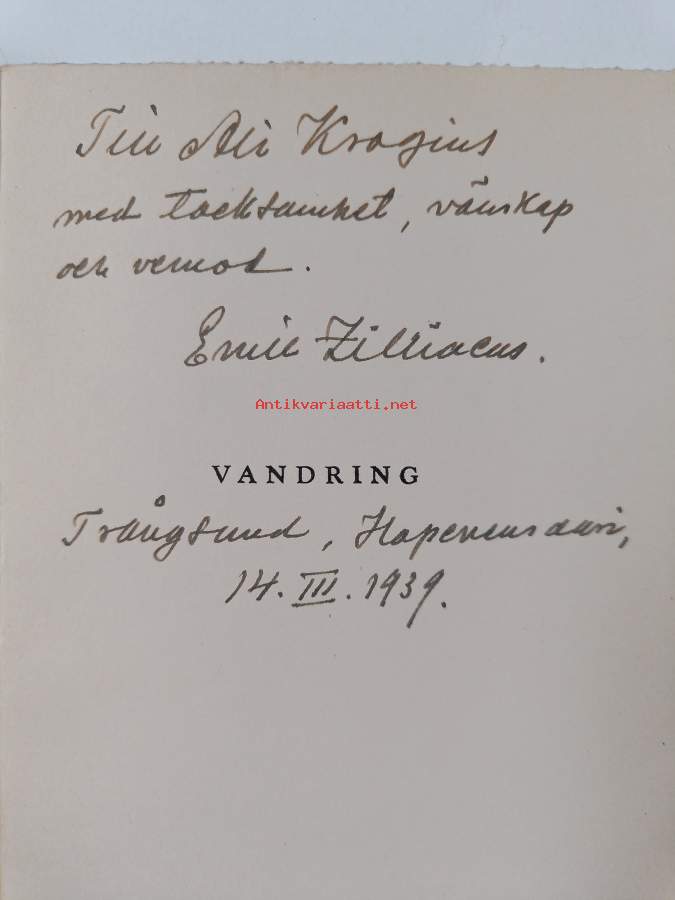 Till Ali Krogius
med tacksamhet, vänskap
och vemod.
Emil Zilliacus.
Antikvariaatti.net
VANDRING
Trångsund, Hapenensaari,
14. III. 1939.